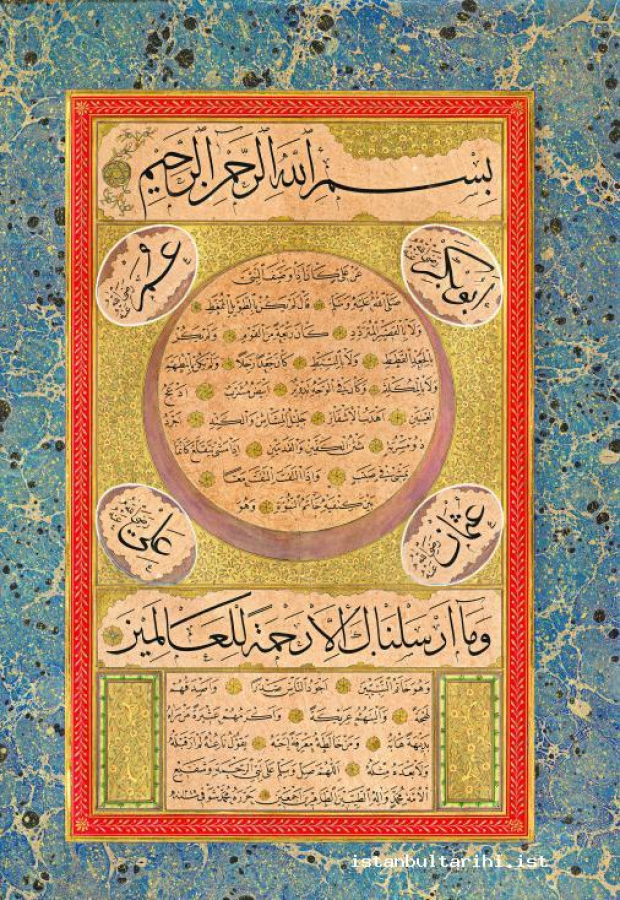 بسم الله الرحمن الرحيم
ابو بكر
رضي الله عنه
عمر
رضي الله عنه
عن علي كان اذا وصف النبي
صلى الله عليه وسلم قال لم يكن بالطويل الممغط
ولا بالقصير المتردد كان ربعة من القوم ولم يكن
بالجعد القطط ولا بالسبط كان جعدا رجلا ولم يكن بالمطهم
ولا بالمكلثم وكان في الوجه تدوير ابيض مشرب ادعج
العينين اهدب الاشفار جليل المشاش والكتد اجرد
ذو مسربة شثن الكفين والقدمين اذا مشى يتقلع كانما
يمشي في صبب واذا التفت التفت معا
بين كتفيه خاتم النبوة وهو
عثمان
رضي الله عنه
علي
رضي الله عنه
وما ارسلناك الا رحمة للعالمين
وهو خاتم النبيين اجود الناس صدرا واصدقهم
لهجة والينهم عريكة واكرمهم عشيرة من رآه
بديهة هابه ومن خالطه معرفة احبه يقول ناعته لم ار قبله
ولا بعده مثله اللهم صل وسلم على نبي الرحمة وشفيع
الامة محمد وآله الطيبين الطاهرين اجمعين حرره محمد شوقي
istanbultarihi.ist